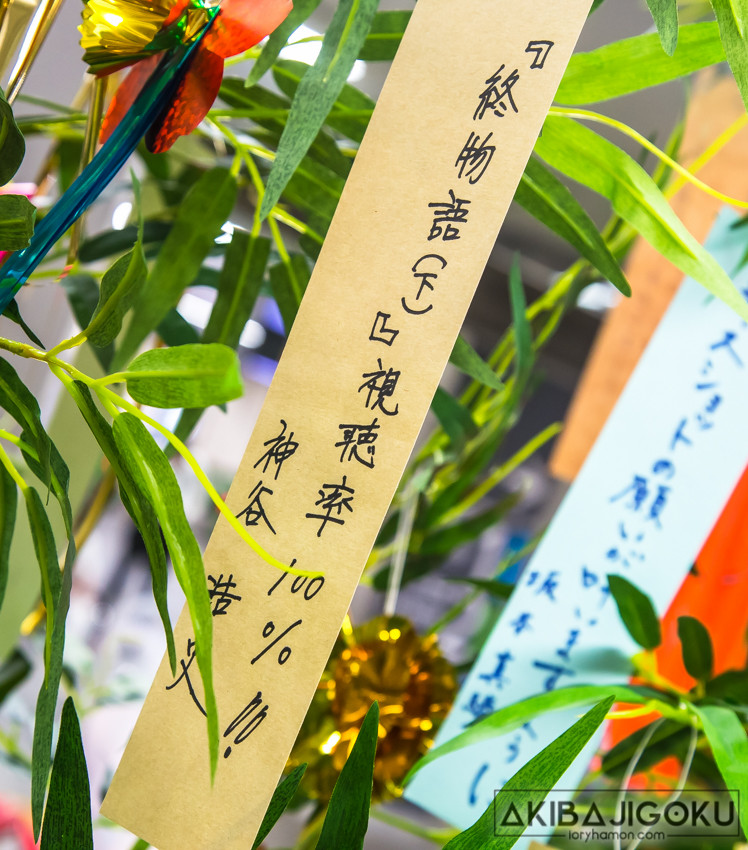 『終物語(下)』視聴率100%!!
神谷浩史
スショットの願いが叶いますように
坂本真綾
AKIBAJIGOKU
loryhamon.com